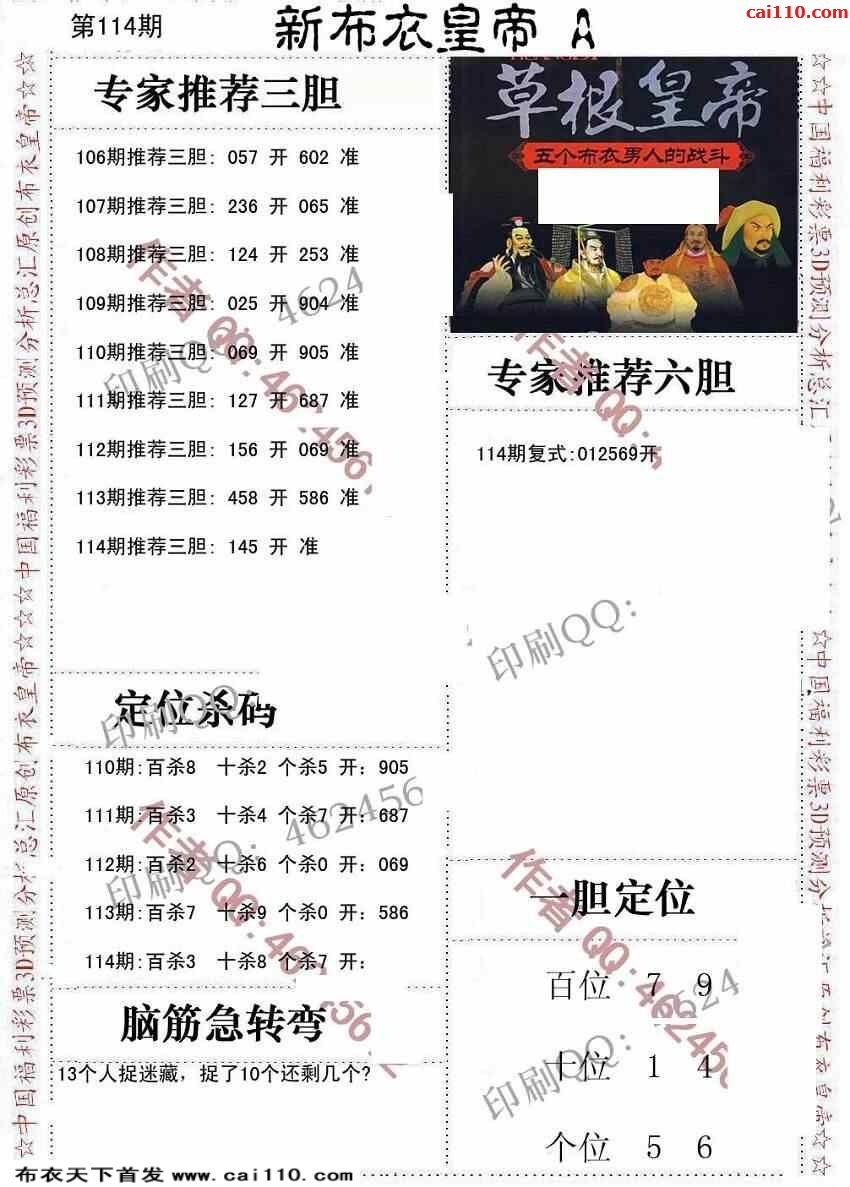 cai110.com
第114期
新布衣皇帝 A
专家推荐三胆
106期推荐三胆: 057 开 602 准
107期推荐三胆: 236 开 065 准
108期推荐三胆: 124 开 253 准
109期推荐三胆: 025 开 904 准
110期推荐三胆: 069 开 905 准
111期推荐三胆: 127 开 687 准
112期推荐三胆: 156 开 069 准
113期推荐三胆: 458 开 586 准
114期推荐三胆: 145 开 准
草根皇帝
五个布衣男人的战斗
专家推荐六胆
114期复式:012569开
定位杀码
110期:百杀8 十杀2 个杀5 开: 905
111期:百杀3 十杀4 个杀7 开: 687
112期:百杀2 十杀6 个杀0 开: 069
113期:百杀7 十杀9 个杀0 开: 586
114期:百杀3 十杀8 个杀7 开:
脑筋急转弯
13个人捉迷藏，捉了10个还剩几个?
一胆定位
百位 7 9
十位 1 4
个位 5 6
☆中国福利彩票3D预测分析总汇原创布衣皇帝☆☆☆中国福利彩票3D预测分析总汇原创布衣皇帝☆☆
☆☆中国福利彩票3D预测分析总汇
☆中国福利彩票3D预测分
印刷QQ: 4624
作者QQ:462456
印刷QQ:
印刷QQ: 462456
作者QQ:462456
印刷QQ: 4624
作者QQ:462456
布衣天下首发 www.cai110.com